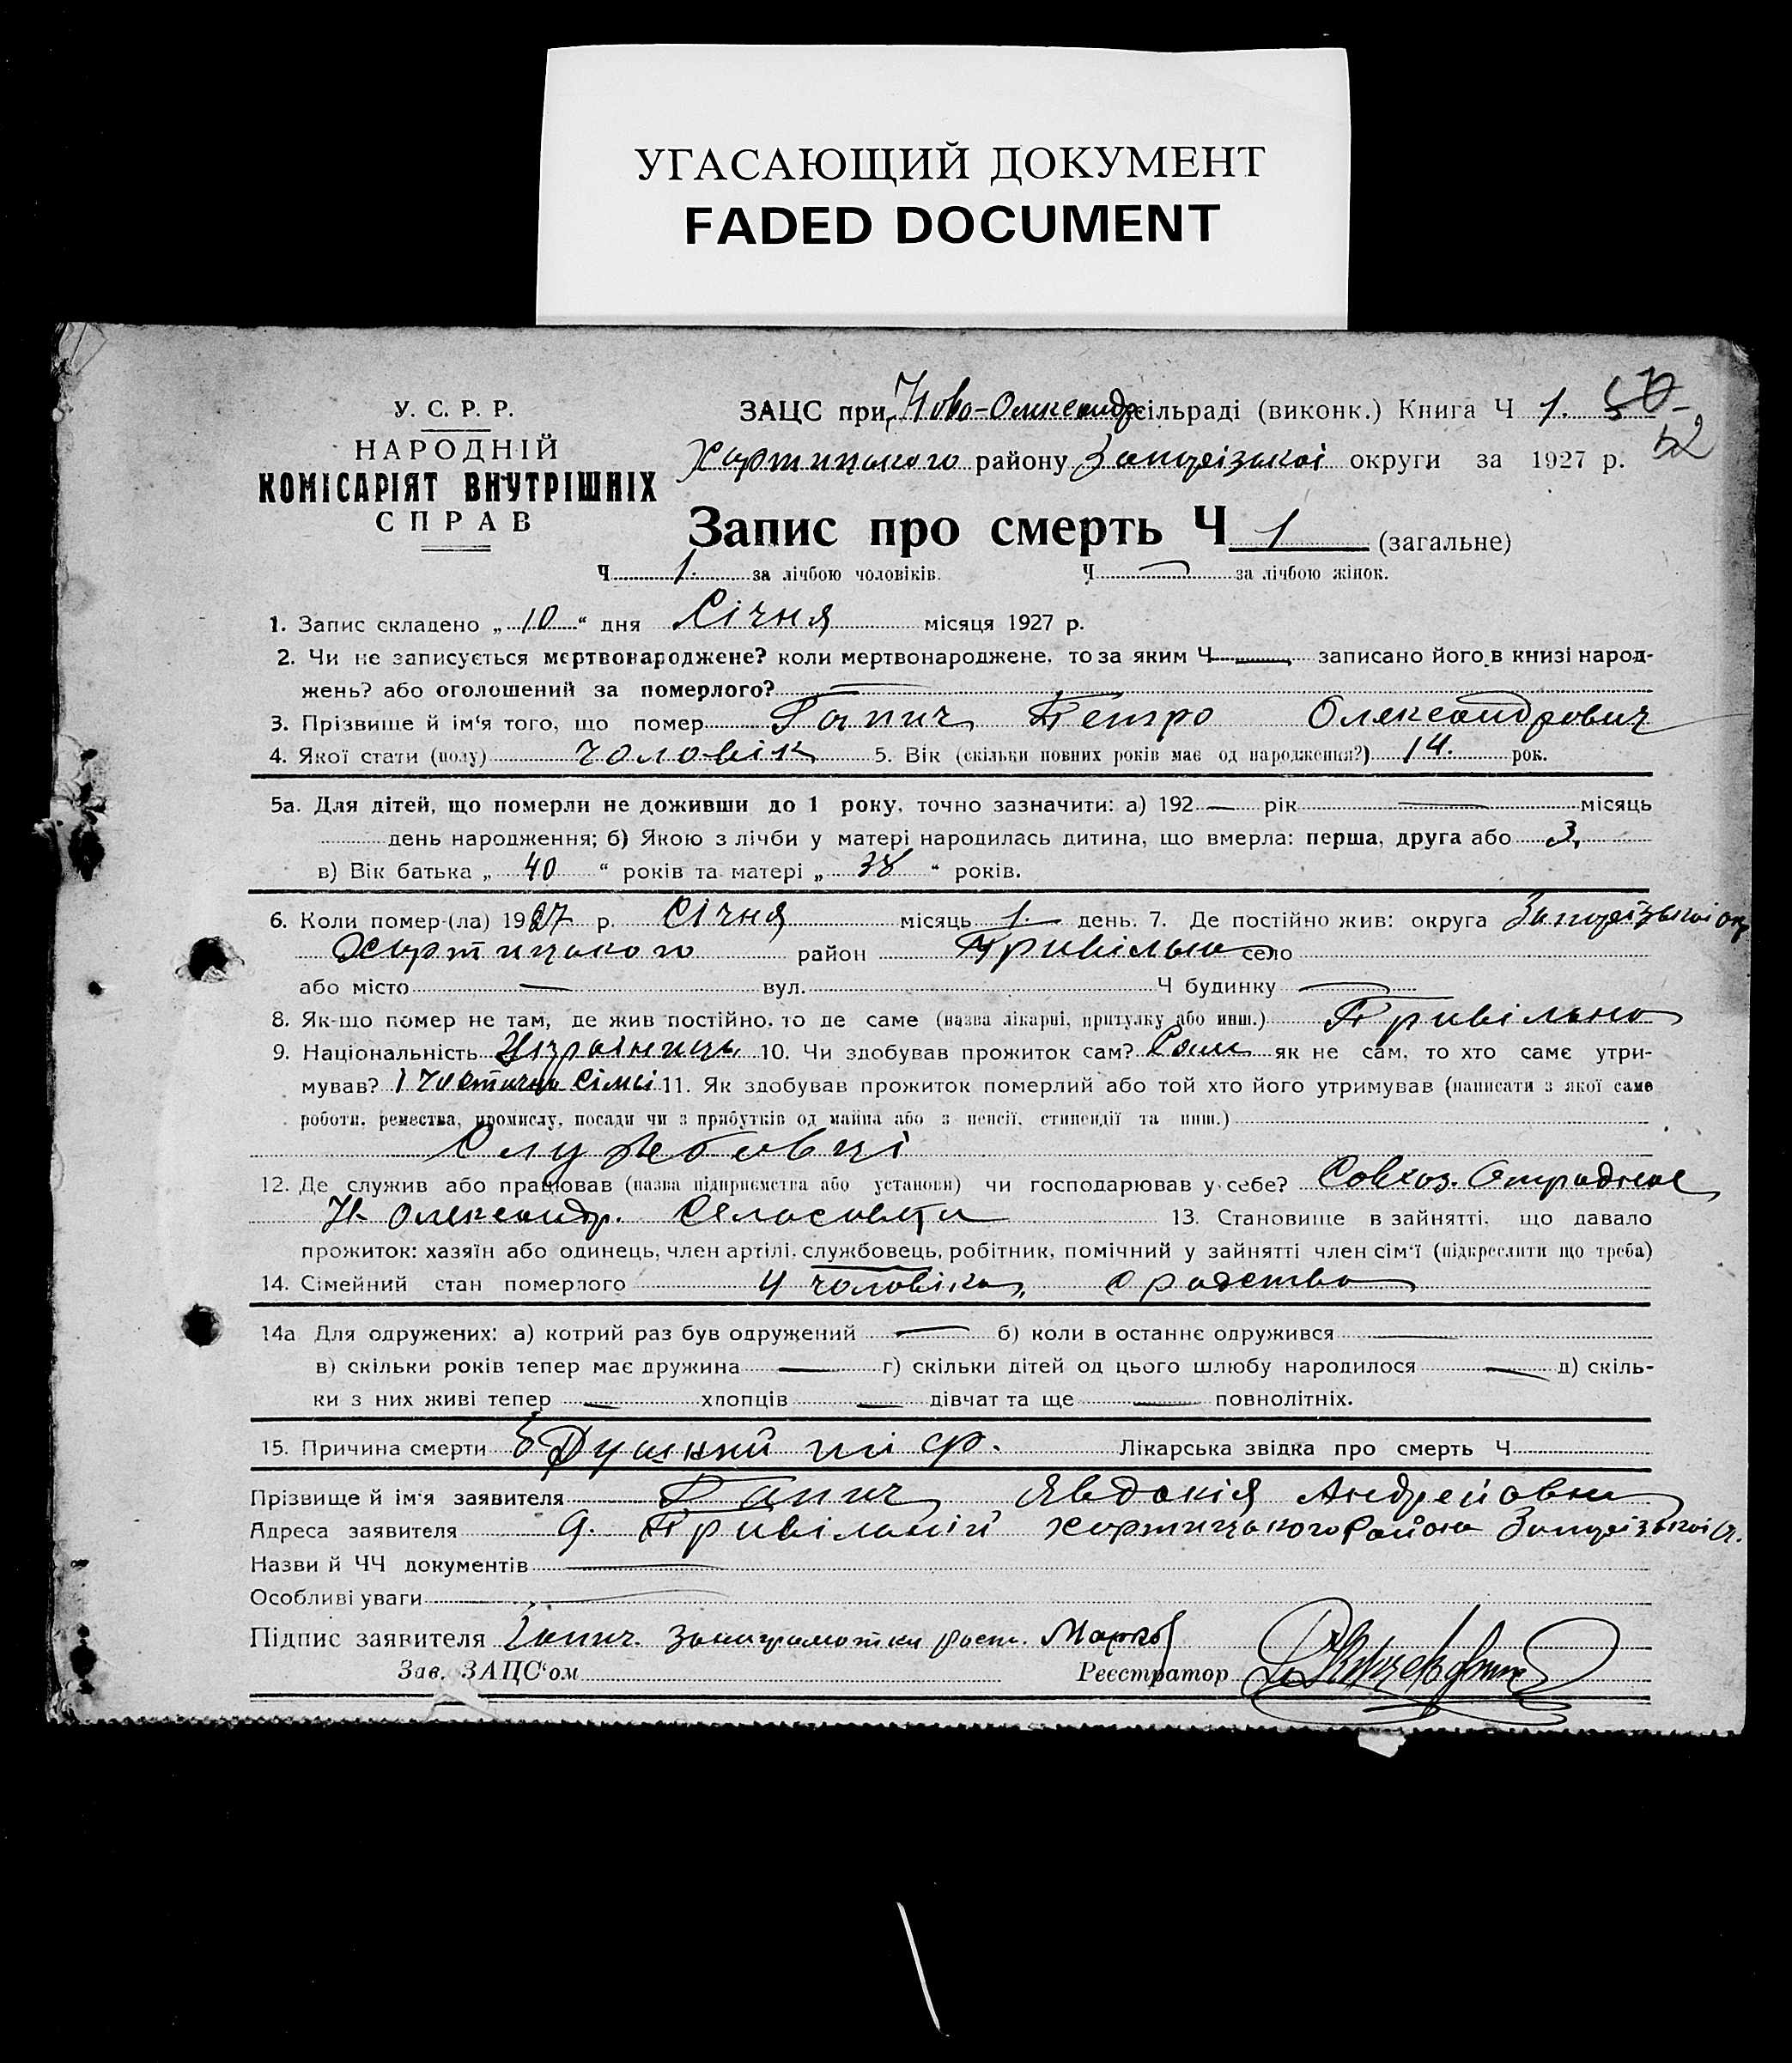 УГАСАЮЩИЙ ДОКУМЕНТ
FADED DOCUMENT
У. С. Р. Р.
НАРОДНІЙ
КОМІСАРІЯТ ВНУТРІШНІХ
СПРАВ
ЗАЦС при Ново-Олександр сільраді (виконк.) Книга Ч 1.
52
Хортицького району Запорізької округи за 1927 р.
Запис про смерть Ч 1 (загальне)
Ч 1. за лічбою чоловіків. Ч — за лічбою жінок.
1. Запис складено „ 10 “ дня Січня місяця 1927 р.
2. Чи не записується мертвонароджене? коли мертвонароджене, то за яким Ч — записано його в книзі народ-
жень? або оголошений за померлого? —
3. Прізвище й ім'я того, що помер Гапич Петро Олександрович
4. Якої стати (полу) чоловік 5. Вік (скільки повних років має од народження?) 14. рок.
5а. Для дітей, що померли не доживши до 1 року, точно зазначити: а) 192 — рік — місяць
день народження; б) Якою з лічби у матері народилась дитина, що вмерла: перша, друга або 3,
в) Вік батька „ 40 “ років та матері „ 38 “ років.
6. Коли помер-(ла) 1927 р. Січня місяць 1. день. 7. Де постійно жив: округа Запорізької окр
Хортицького район Привільно село
або місто — вул. Ч будинку —
8. Як-що помер не там, де жив постійно, то де саме (назва лікарні, притулку або инш.) Привільно
9. Національність Українець 10. Чи здобував прожиток сам? Сам як не сам, то хто саме утри-
мував? і частично сімьі 11. Як здобував прожиток померлий або той хто його утримував (написати з якої саме
роботи, ремества, промислу, посади чи з прибутків од майна або з пенсії, стипендії та инш.)
Службовці
12. Де служив або працював (назва підприємства або установи) чи господарював у себе? Совхоз. Отрадное
Н Олександр. Сельсовета 13. Становище в зайнятті, що давало
прожиток: хазяїн або одинець, член артілі, службовець, робітник, помічний у зайнятті член сім'ї (підкреслити що треба)
14. Сімейний стан померлого 4 чоловіка,
14а Для одружених: а) котрий раз був одружений — б) коли в останнє одружився —
в) скільки років тепер має дружина — г) скільки дітей од цього шлюбу народилося — д) скіль-
ки з них живі тепер — хлопців — дівчат та ще — повнолітніх.
15. Причина смерти тіф. Лікарська звідка про смерть Ч
Прізвище й ім'я заявителя Гапич Явдокія Андрейовна
Адреса заявителя Привільній Хортицького Району Запорізької о.
Назви й ЧЧ документів —
Особливі уваги —
Підпис заявителя Гапич.
Зав. ЗАЦС'ом Реєстратор